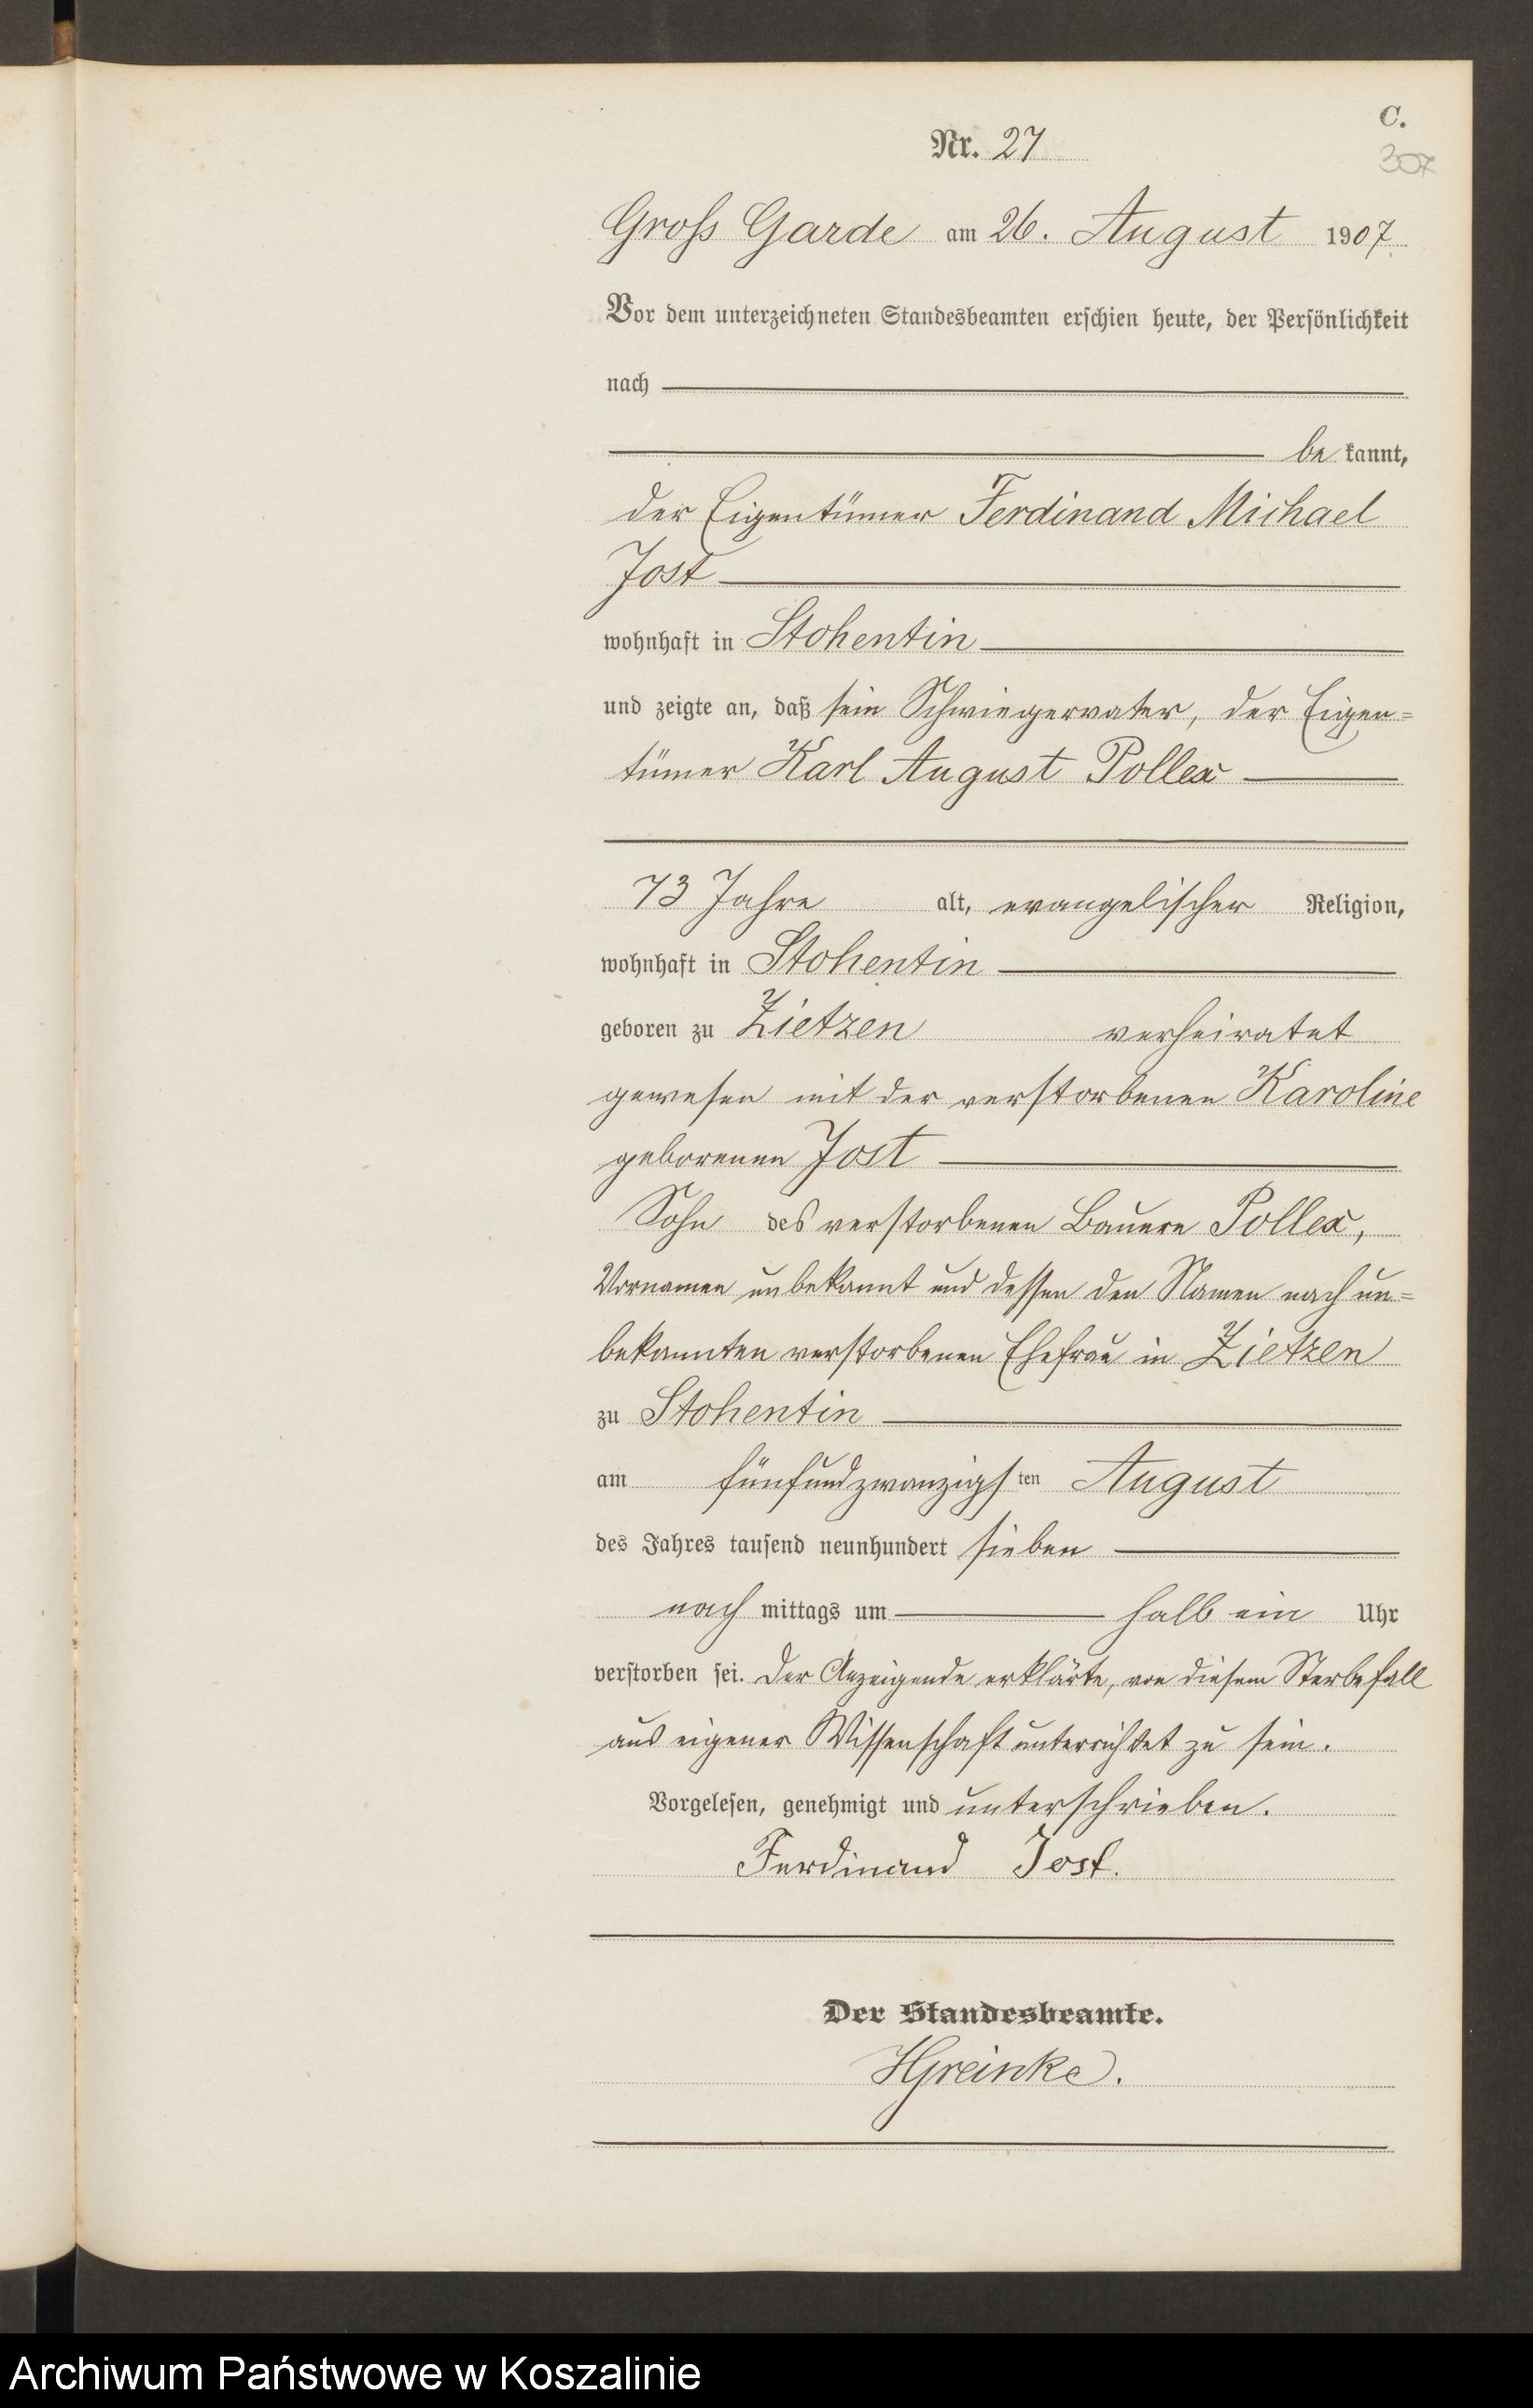 C.
Nr. 27
307
Gross Garde am 26. August 1907
Vor dem unterzeichneten Standesbeamten erschien heute, der Persönlichkeit
nach
be kannt,
der Eigentümer Ferdinand Michael
Jost
wohnhaft in Stohentin
und zeigte an, daß sein Schwiegervater, der Eigen=
tümer Karl August Pollex
73 Jahre alt, evangelischer Religion,
wohnhaft in Stohentin
geboren zu Zietzen verheiratet
gewesen mit der verstorbenen Karoline
geborenen Jost
Sohn des verstorbenen Bauern Pollex,
Vornamen unbekannt und dessen den Namen nach un=
bekannten verstorbenen Ehefrau in Zietzen
zu Stohentin
am fünfundzwanzigsten August
des Jahres tausend neunhundert sieben
nach mittags um halb ein Uhr
verstorben sei. Der Anzeigende erklärte, von diesem Sterbefall
aus eigener Wissenschaft unterrichtet zu sein.
Vorgelesen, genehmigt und unterschrieben.
Ferdinand Jost.
Der Standesbeamte.
Archiwum Państwowe w Koszalinie